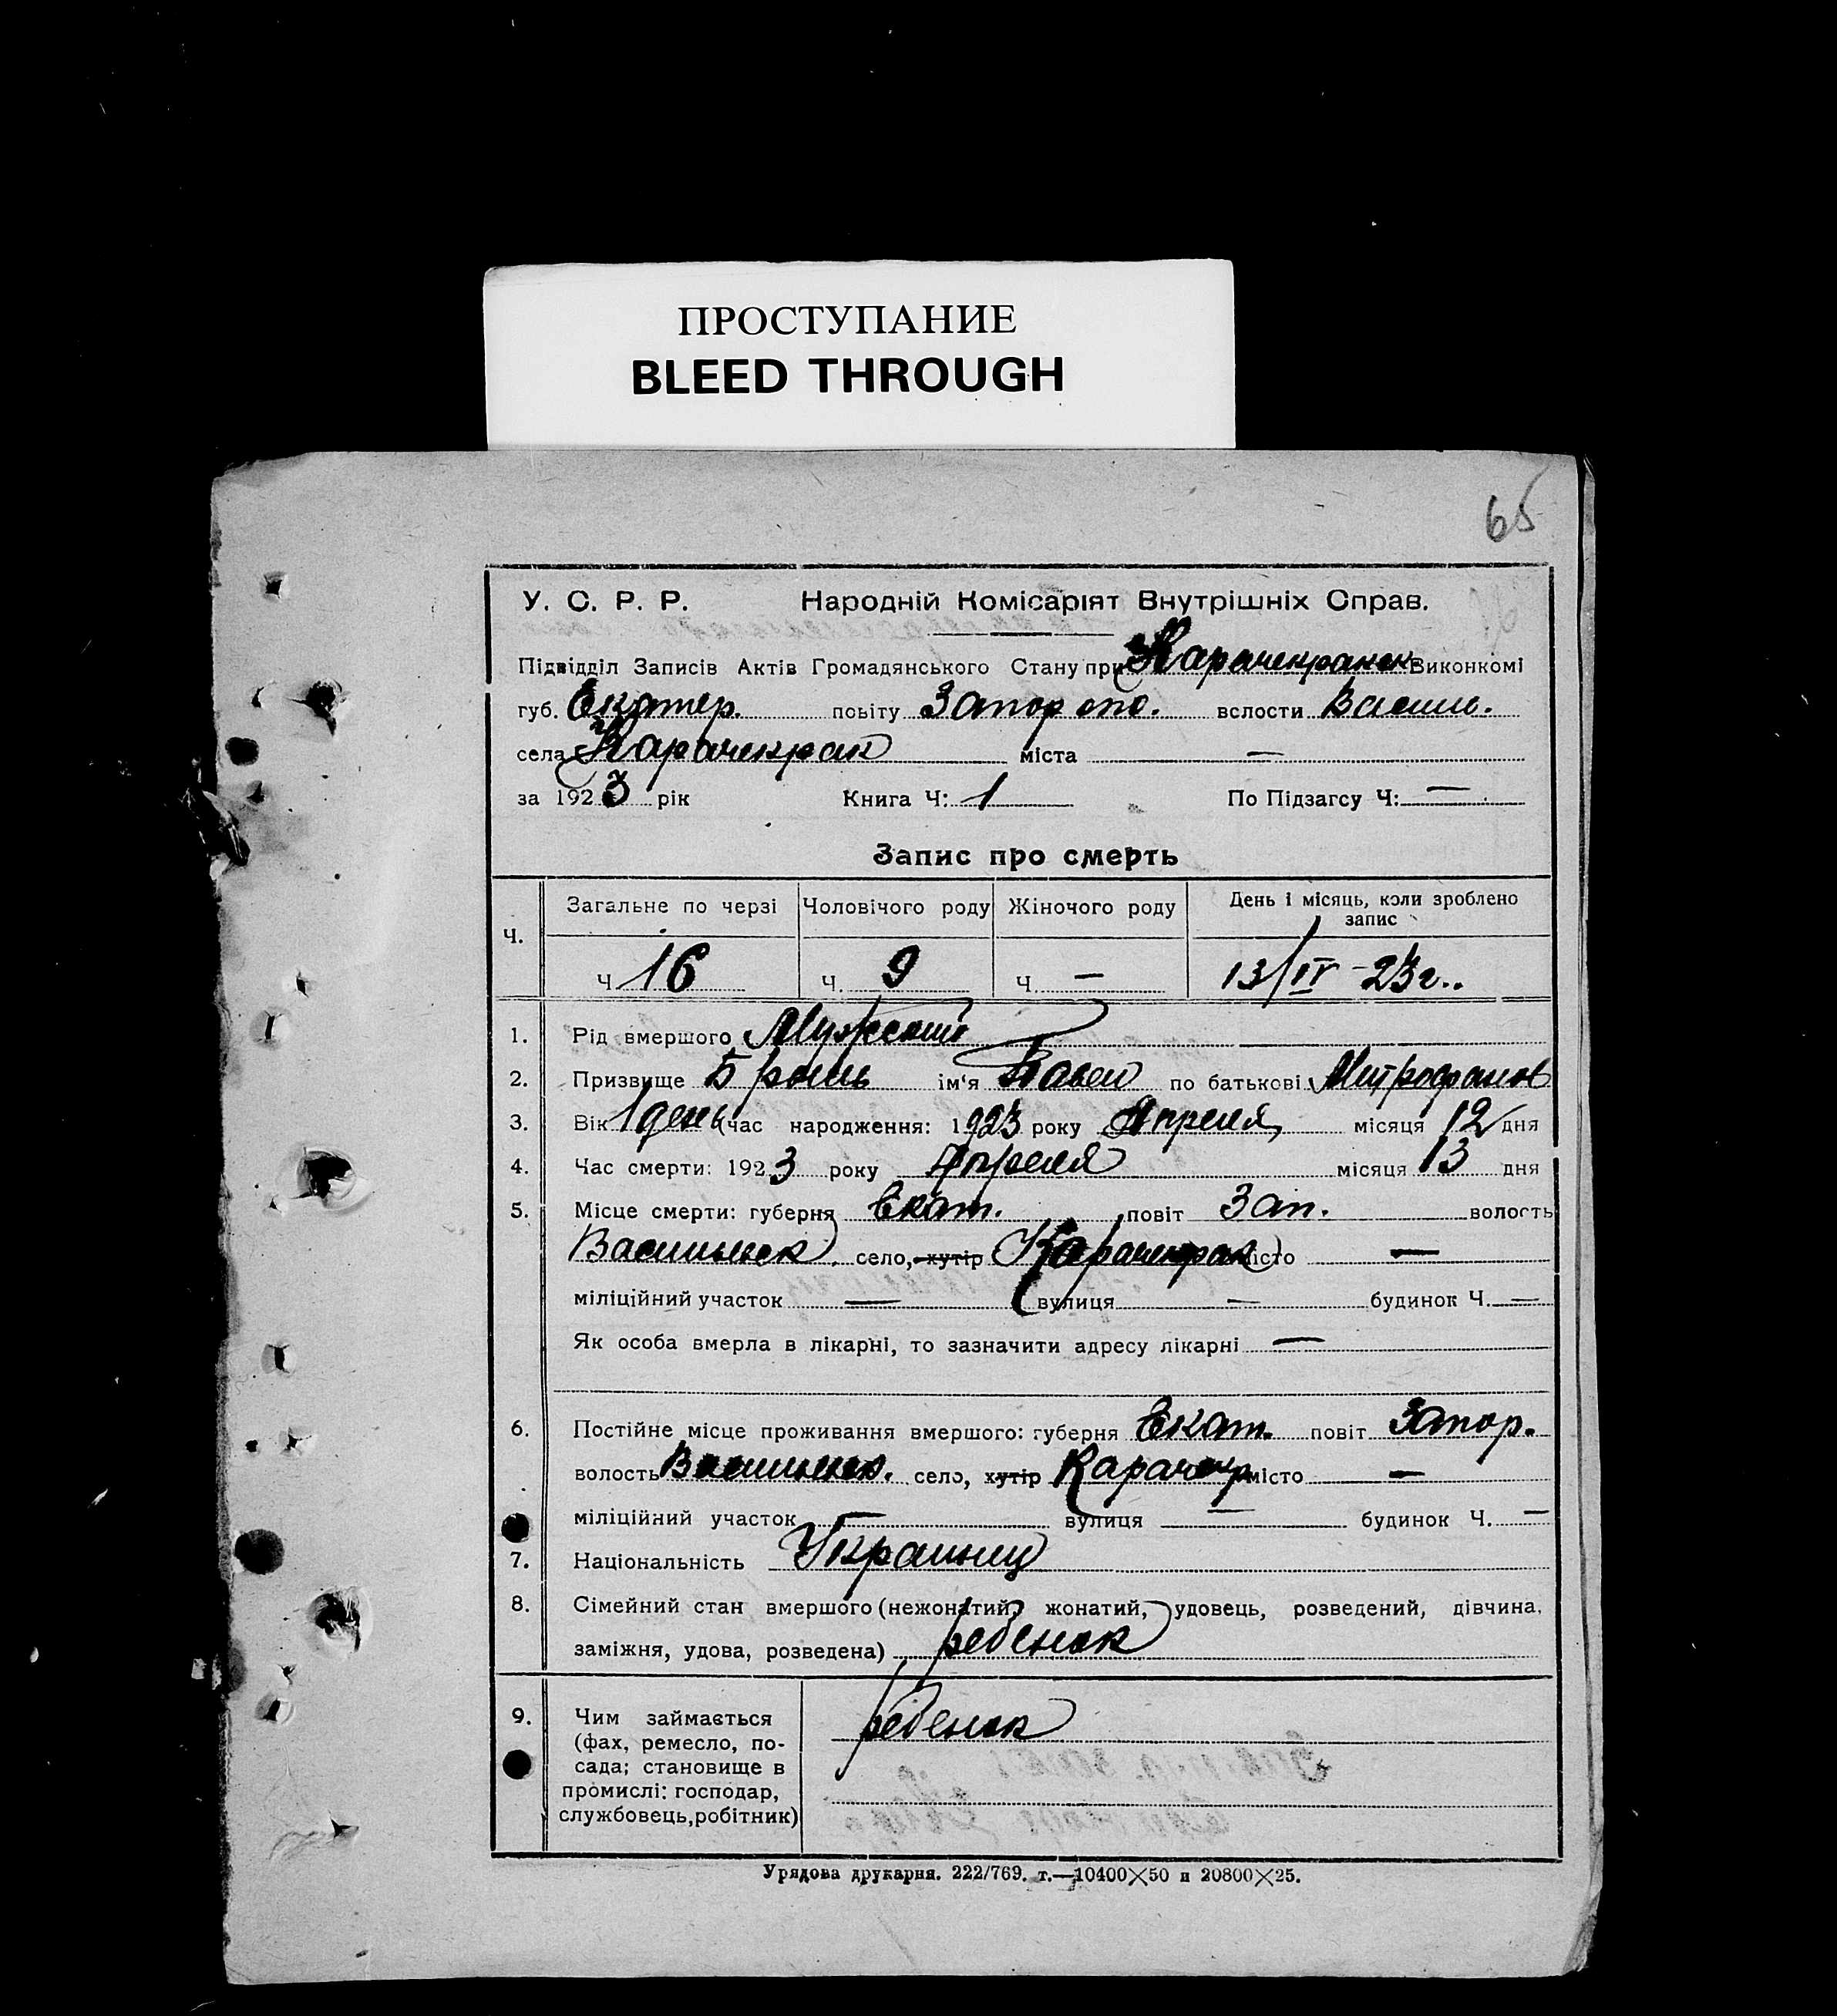 ПРОСТУПАНИЕ
BLEED THROUGH
65
У. С. Р. Р. Народній Комісаріят Внутрішніх Справ.
Підвідділ Записів Актів Громадянського Стану при Карачекракск. Виконкомі
губ. Екатер. повіту Запорожс. волости Васил.
села Карачекрак міста —
за 1923 рік Книга Ч: 1 По Підзагсу Ч: —
Запис про смерть
Ч. Загальне по черзі Чоловічого роду Жіночого роду День і місяць, коли зроблено
запис
Ч 16 Ч. 9 Ч — 13/IV-23г.
1. Рід вмершого Мужской
2. Призвище ім'я Павел по батькові Митрофанов
3. Вік 1 день час народження: 1923 року Апреля місяця 12 дня
4. Час смерти: 1923 року Апреля місяця 13 дня
5. Місце смерти: губерня Екат. повіт Зап. волость
Васильевск село, хутір Карачекрак місто —
міліційний участок — вулиця — будинок Ч. —
Як особа вмерла в лікарні, то зазначити адресу лікарні —
6. Постійне місце проживання вмершого: губерня Екат. повіт Запор.
волость Васильевск. село, хутір Карачекр місто —
міліційний участок — вулиця — будинок Ч. —
7. Національність Украинец
8. Сімейний стан вмершого (нежонатий, жонатий, удовець, розведений, дівчина,
заміжня, удова, розведена) ребенок
9. Чим займається ребенок
(фах, ремесло, по-
сада; становище в
промислі: господар,
службовець,робітник)
Урядова друкарня. 222/769. т.—10400×50 и 20800×25.